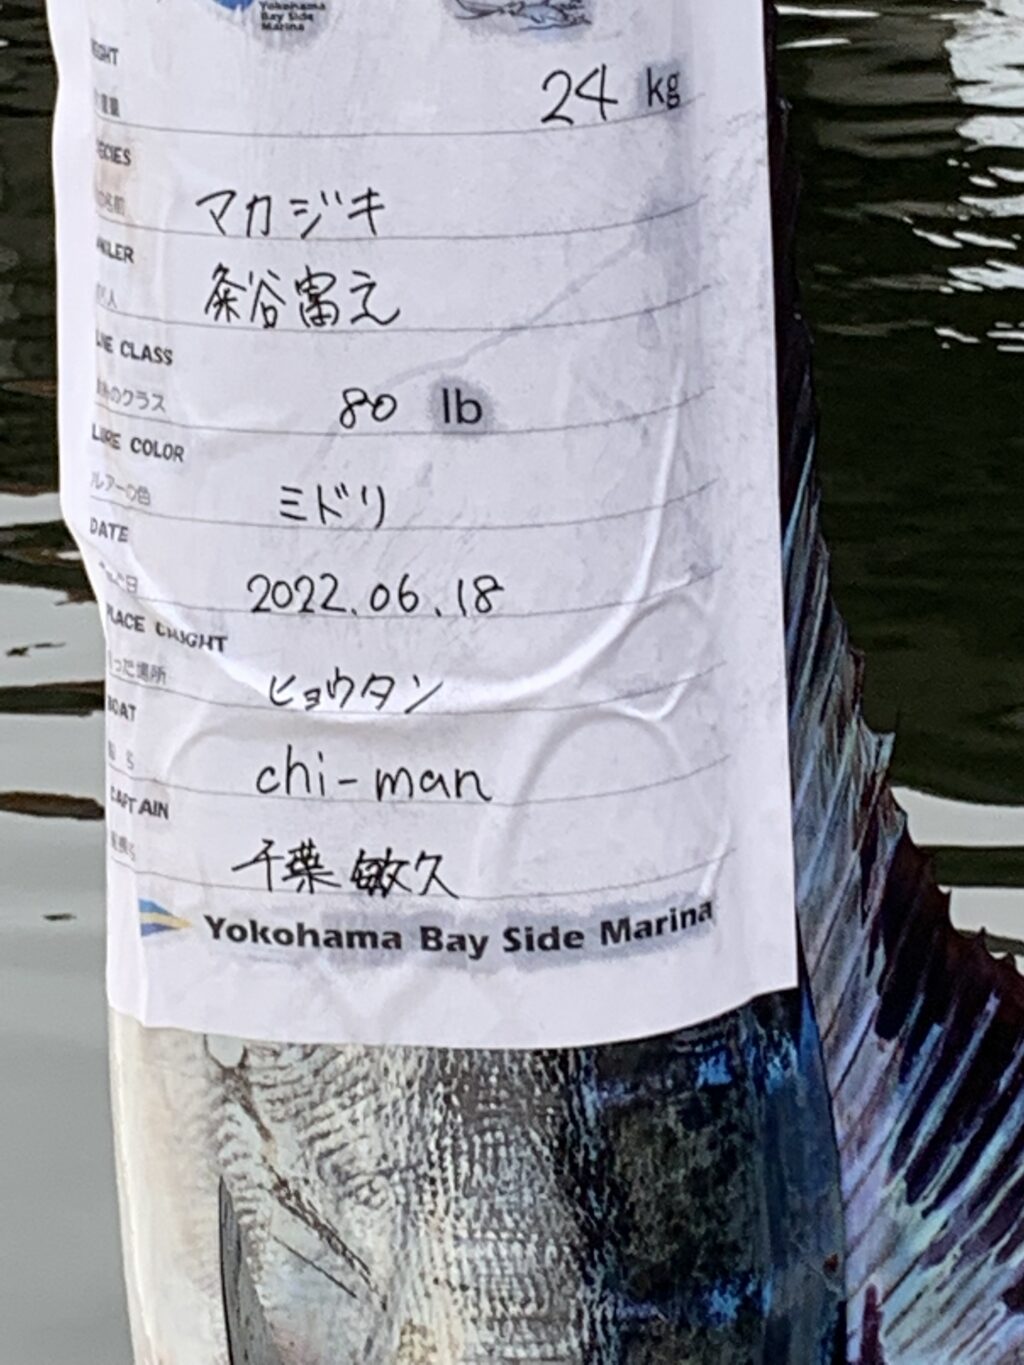 Yokohama
Bay Side
Marina
24 kg
マカジキ
粂谷富之
LINE CLASS
のクラス
80 lb
LURE COLOR
ルアーの色
ミドリ
DATE
日
2022.06.18
PLACE CAUGHT
った場所
ヒョウタン
BOAT
chi-man
CAPTAIN
千葉 敏久
Yokohama Bay Side Marina